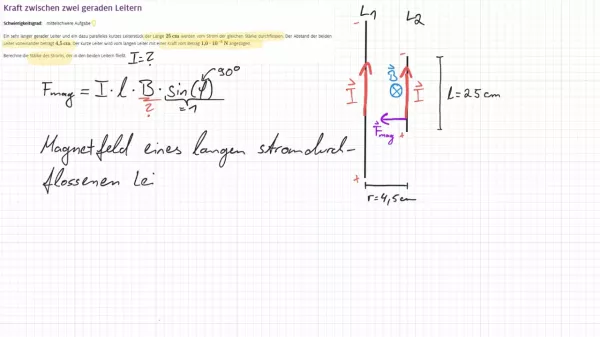 Kraft zwischen zwei geraden Leitern
Schwierigkeitsgrad: mittelschwere Aufgabe
Ein sehr langer gerader Leiter und ein dazu paralleles kurzes Leiterstück der Länge 25 cm werden vom Strom der gleichen Stärke durchflossen. Der Abstand der beiden
Leiter voneinander beträgt 4,5 cm. Der kurze Leiter wird vom langen Leiter mit einer Kraft vom Betrag angezogen.
Berechne die Stärke des Stroms, der in den beiden Leitern fließt.
I=?
F_mag = I · l · B · sin(φ)
90°
?
=1
Magnetfeld eines langen stromdurch-
flossenen Lei
L1
L2
-
-
I
B
⊗
I
F_mag
+
+
L=25cm
r=4,5cm